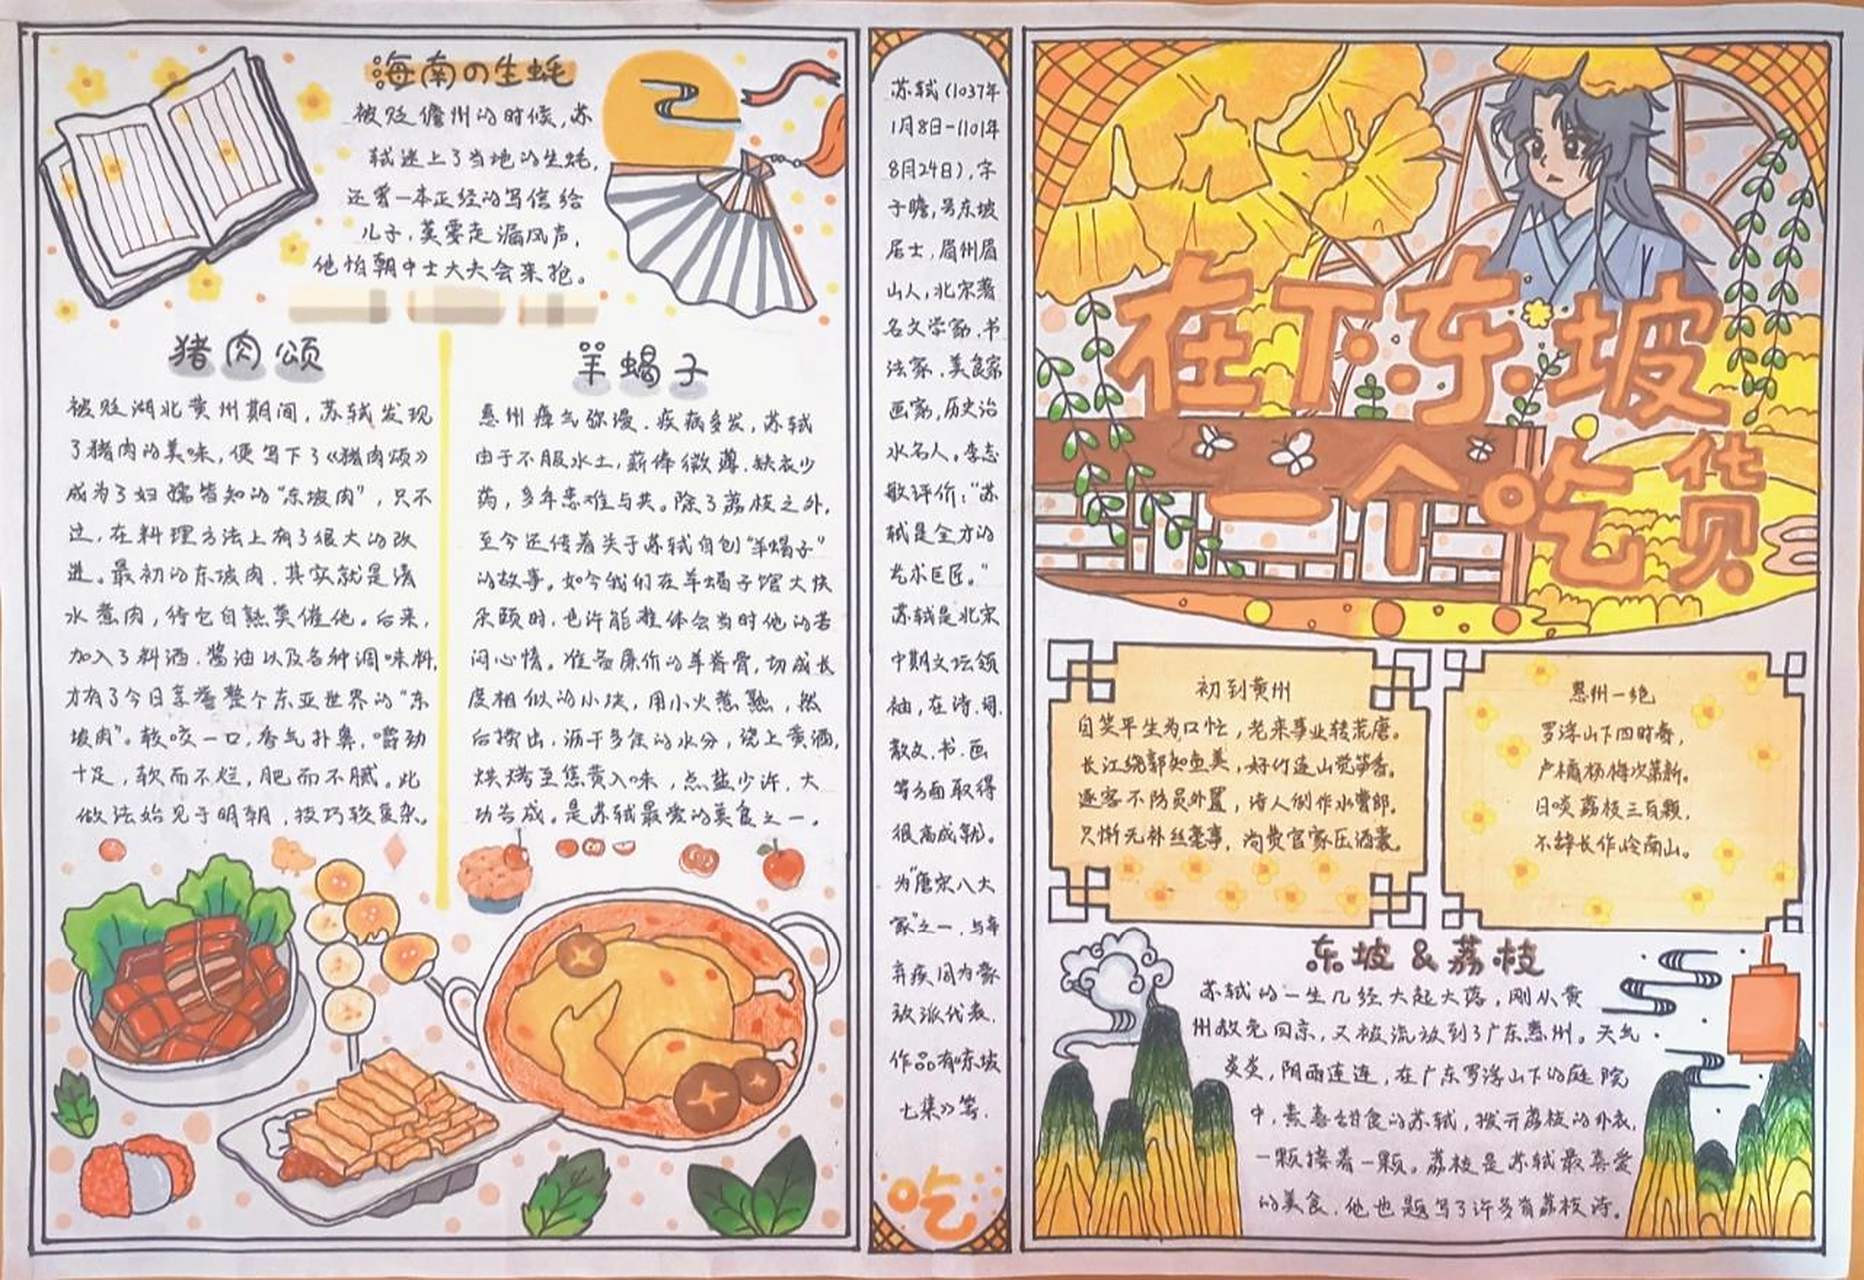 海南の生蚝
被贬儋州的时候,苏
轼迷上了当地的生蚝,
还常一本正经的写信给
儿子,莫要走漏风声,
他怕朝中士大夫会来抢。
猪肉颂
被贬湖北黄州期间,苏轼发现
了猪肉的美味,便写下了《猪肉颂》
成为了妇孺皆知的“东坡肉”,只不
过,在料理方法上有了很大的改
进。最初的东坡肉,其实就是清
水煮肉,待它自熟莫催他。后来,
加入了料酒、酱油以及各种调味料,
才有了今日享誉整个东亚世界的“东
坡肉”。轻咬一口,香气扑鼻,嚼劲
十足,软而不烂,肥而不腻。此
做法始见于明朝,技巧较复杂。
羊蝎子
惠州瘴气弥漫、疾病多发,苏轼
由于不服水土,薪俸微薄、缺衣少
药,多年患难与共。除了荔枝之外,
至今还传着关于苏轼自创“羊蝎子”
的故事。如今我们在羊蝎子馆大快
朵颐时,也许能难体会当时他的苦
闷心情。准备廉价的羊脊骨,切成长
度相似的小块,用小火煮熟,然
后捞出,沥干多余的水分,浇上黄酒,
烘烤至焦黄入味,点盐少许,大
功告成。是苏轼最爱的美食之一。
苏轼(1037年
1月8日-1101年
8月24日),字
子瞻,号东坡
居士,眉州眉
山人,北宋著
名文学家、书
法家、美食家
画家,历史治
水名人。李志
敏评价:“苏
轼是全才的
艺术巨匠。”
苏轼是北宋
中期文坛领
袖,在诗、词、
散文、书、画
等方面取得
很高成就。
为“唐宋八大
家”之一,与辛
弃疾同为豪
放派代表,
作品有《东坡
七集》等。
吃
在下东坡
一个吃货
初到黄州
自笑平生为口忙,老来事业转荒唐。
长江绕郭知鱼美,好竹连山觉笋香。
逐客不防员外置,诗人例作水曹郎。
只惭无补丝毫事,尚费官家压酒囊。
惠州一绝
罗浮山下四时春,
卢橘杨梅次第新。
日啖荔枝三百颗,
不辞长作岭南山。
东坡&荔枝
苏轼的一生几经大起大落,刚从黄
州赦免回京,又被流放到了广东惠州。天气
炎炎,阴雨连连,在广东罗浮山下的庭院
中,素喜甜食的苏轼,拨开荔枝的外衣,
一颗接着一颗。荔枝是苏轼最喜爱
的美食,他也题写了许多首荔枝诗。